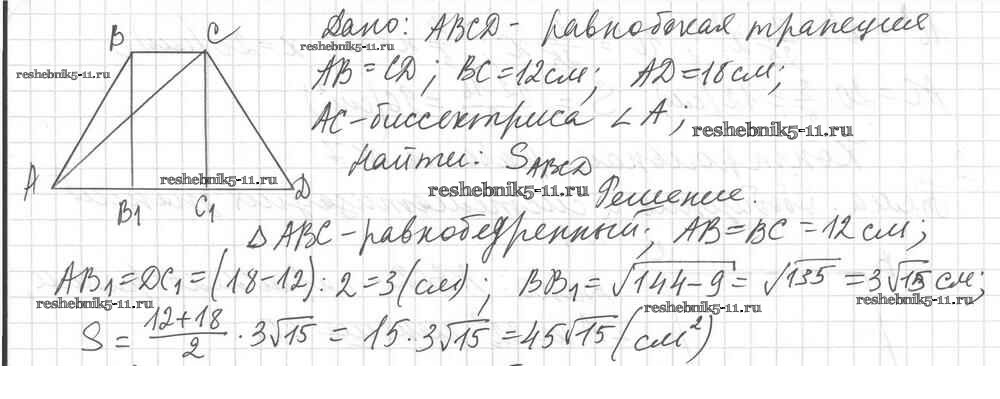 B C
Дано: ABCD - равнобокая трапеция
reshebnik5-11.ru
reshebnik5-11.ru
AB = CD; BC = 12 см; AD = 18 см;
AC - биссектриса ∠A;
reshebnik5-11.ru
Найти: S_ABCD
reshebnik5-11.ru
A D
reshebnik5-11.ru
B₁ C₁
Решение.
Δ ABC - равнобедренный; AB = BC = 12 см;
AB₁ = DC₁ = (18-12) : 2 = 3 (см); BB₁ = √144-9 = √135 = 3√15 см;
reshebnik5-11.ru
reshebnik5-11.ru
reshebnik5-11.ru
S = 12+18/2 · 3√15 = 15 · 3√15 = 45√15 (см²)